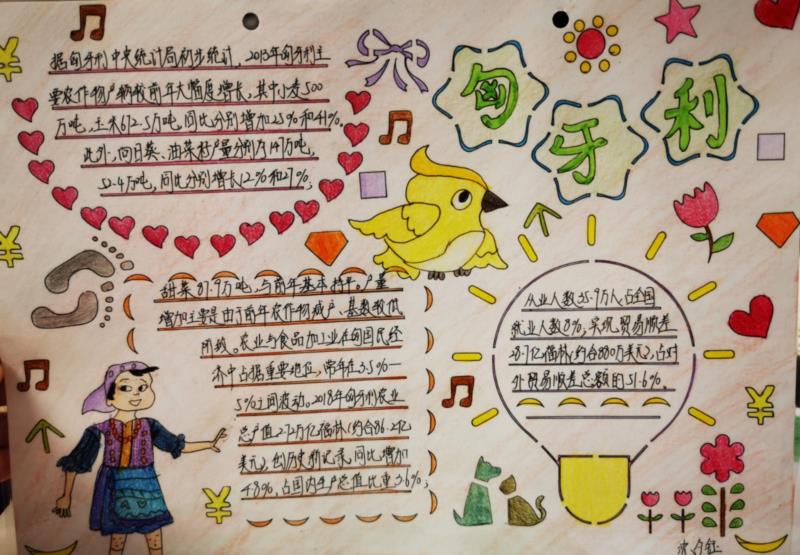 据匈牙利中央统计局初步统计，2013年匈牙利主
要农作物产物较前年大幅度增长，其中小麦500
万吨，玉米672.5万吨，同比分别增加25%和41%。
此外，向日葵、油菜籽产量分别为147万吨，
52.4万吨，同比分别增长12%和27%；
匈牙利
甜菜87.9万吨，与前年基本持平。产量
增加主要是由于前年农作物减产，基数较低
阶段。农业与食品加工业在匈国民经
济中占据重要地位，常年在3.5%—
5%之间波动。2018年匈牙利农业
总产值2.72万亿福林（约合86.2亿
美元），创历史新记录，同比增加
4.8%，占国内生产总值比重3.6%；
从业人数35.9万人，占全国
就业人数8%，实现贸易顺差
28.7亿福林（约合880万美元），占对
外贸易顺差总额的51.6%。